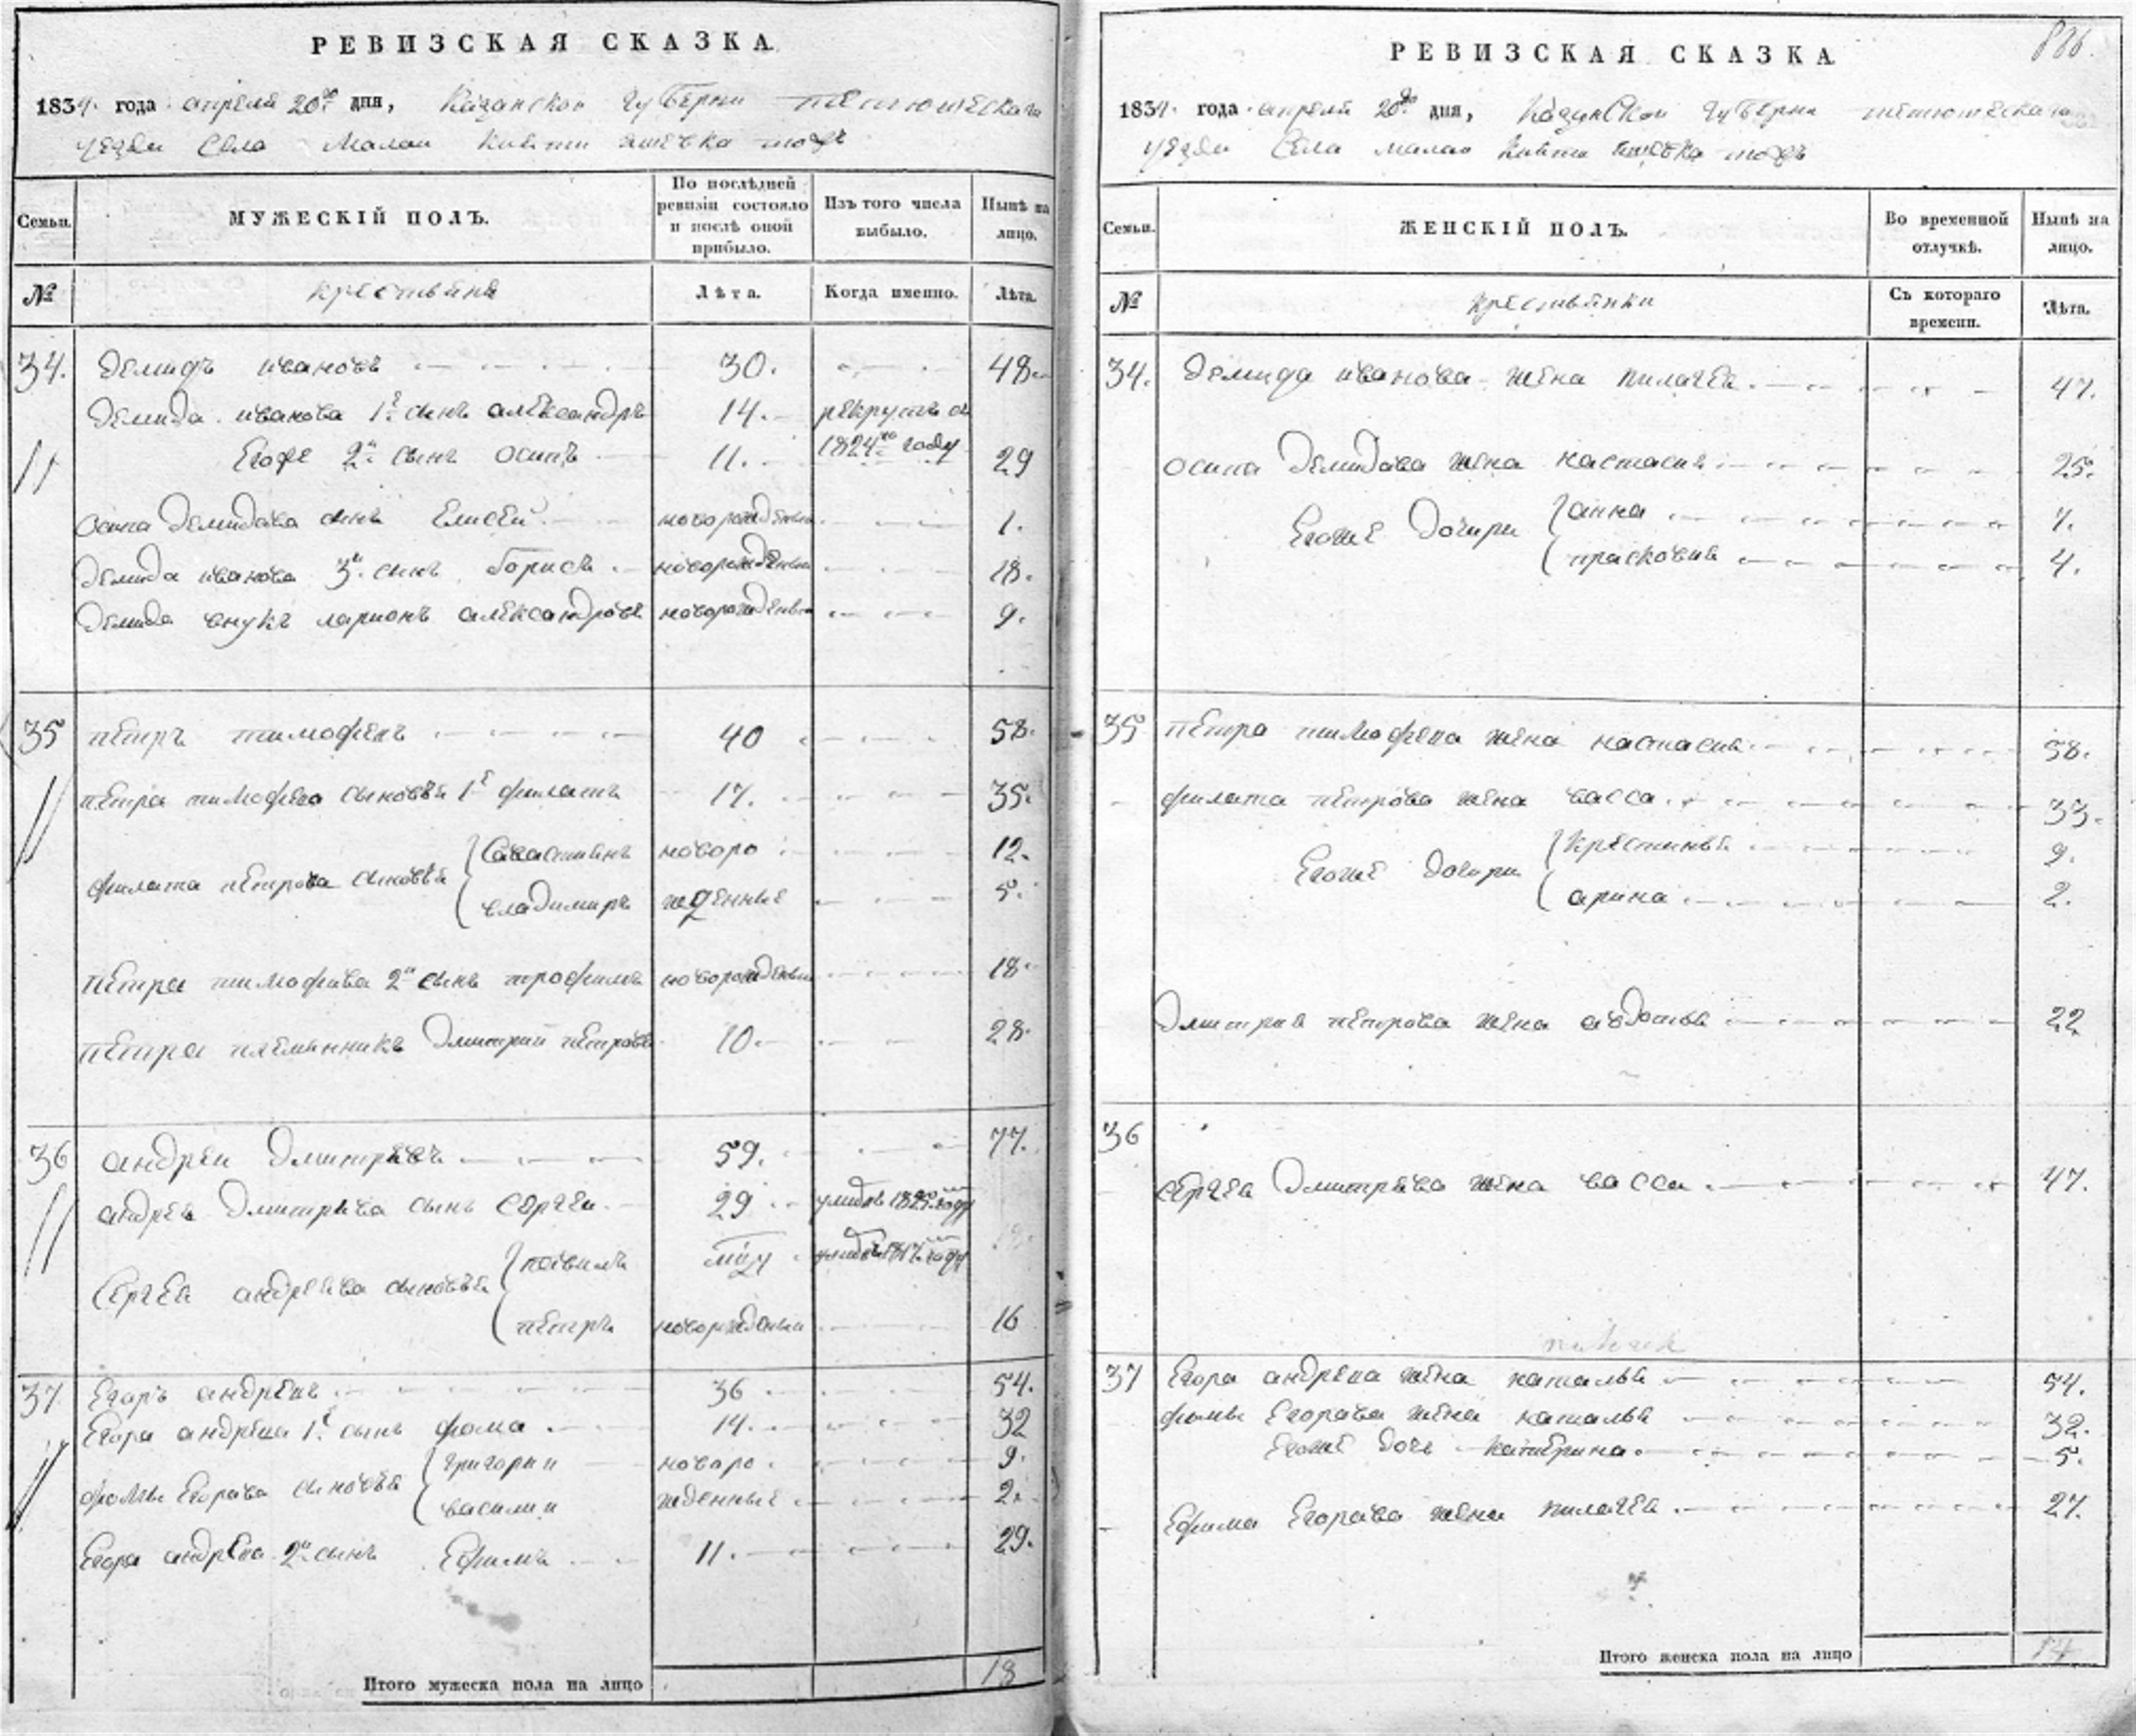 РЕВИЗСКАЯ СКАЗКА
1834. года апреля 20го дня, Казанской губерни тетюшескаго
уезда Села Малаи
Семьи.
МУЖЕСКІЙ ПОЛЪ.
По послѣдней ревизіи состояло и послѣ оной прибыло.
Изъ того числа выбыло.
Нынѣ на лицо.
№
крестьяне
Лѣта.
Когда именно.
Лѣта.
34. Демидъ ивановъ 30. 48.
Демида иванова 1й сынъ александръ 14. рекрутъ
Егоже 2й сынъ осипъ 11. 1824го году 29
осипа Демидова сынъ Елисей новорожденны 1.
Демида иванова 3й сынъ борисъ новорожденны 18.
Демида внукъ ларионъ александровъ новорожденны 9.
35 петръ тимофевъ 40 58.
петра тимофева сыновья 1й филатъ 17. 35.
филата петрова сыновья
Савастьянъ новоро 12.
владимиръ жденные 5.
петра тимофева 2й сынъ трофимъ новорожденны 18.
петра племянникъ Дмитрий петровъ 10. 28.
36 андреи Дмитревъ 59. 77.
андрея Дмитрева сынъ Сергеи 29 году
Сергея андреева сыновья
году
петръ новорожденны 16
37 Егоръ андревъ 36 54.
Егора андрева 1й сынъ фома 14. 32
фомы Егорава сыновья
григории новоро 9.
василии жденные 2.
Егора андрева 2й сынъ Ефимъ 11. 29.
Итого мужеска пола на лицо 18
886.
РЕВИЗСКАЯ СКАЗКА
1834. года апреля 20го дня, Казанской губерни тетюшескаго
уезда Села малаи
Семьи.
ЖЕНСКІЙ ПОЛЪ.
Во временной отлучкѣ.
Нынѣ на лицо.
№
крестьянки
Съ котораго времени.
Лѣта.
34. Демида иванова жена пилагея 47.
осипа Демидова жена настасия 25.
Егоже Дочири
анна 7.
прасковия 4.
35 петра тимофева жена настасия 58.
филата петрова жена васса 33.
Егоже дочири
крестинья 9.
арина 2.
Дмитрия петрова жена авдотья 22
36
сергея Дмитрева жена васса 47.
37 Егора андрева жена наталья 54.
фомы Егорава жена наталья 32.
Егоже дочь катерина 5.
Ефима Егорава жена пилагея 27.
Итого женска пола на лицо 14